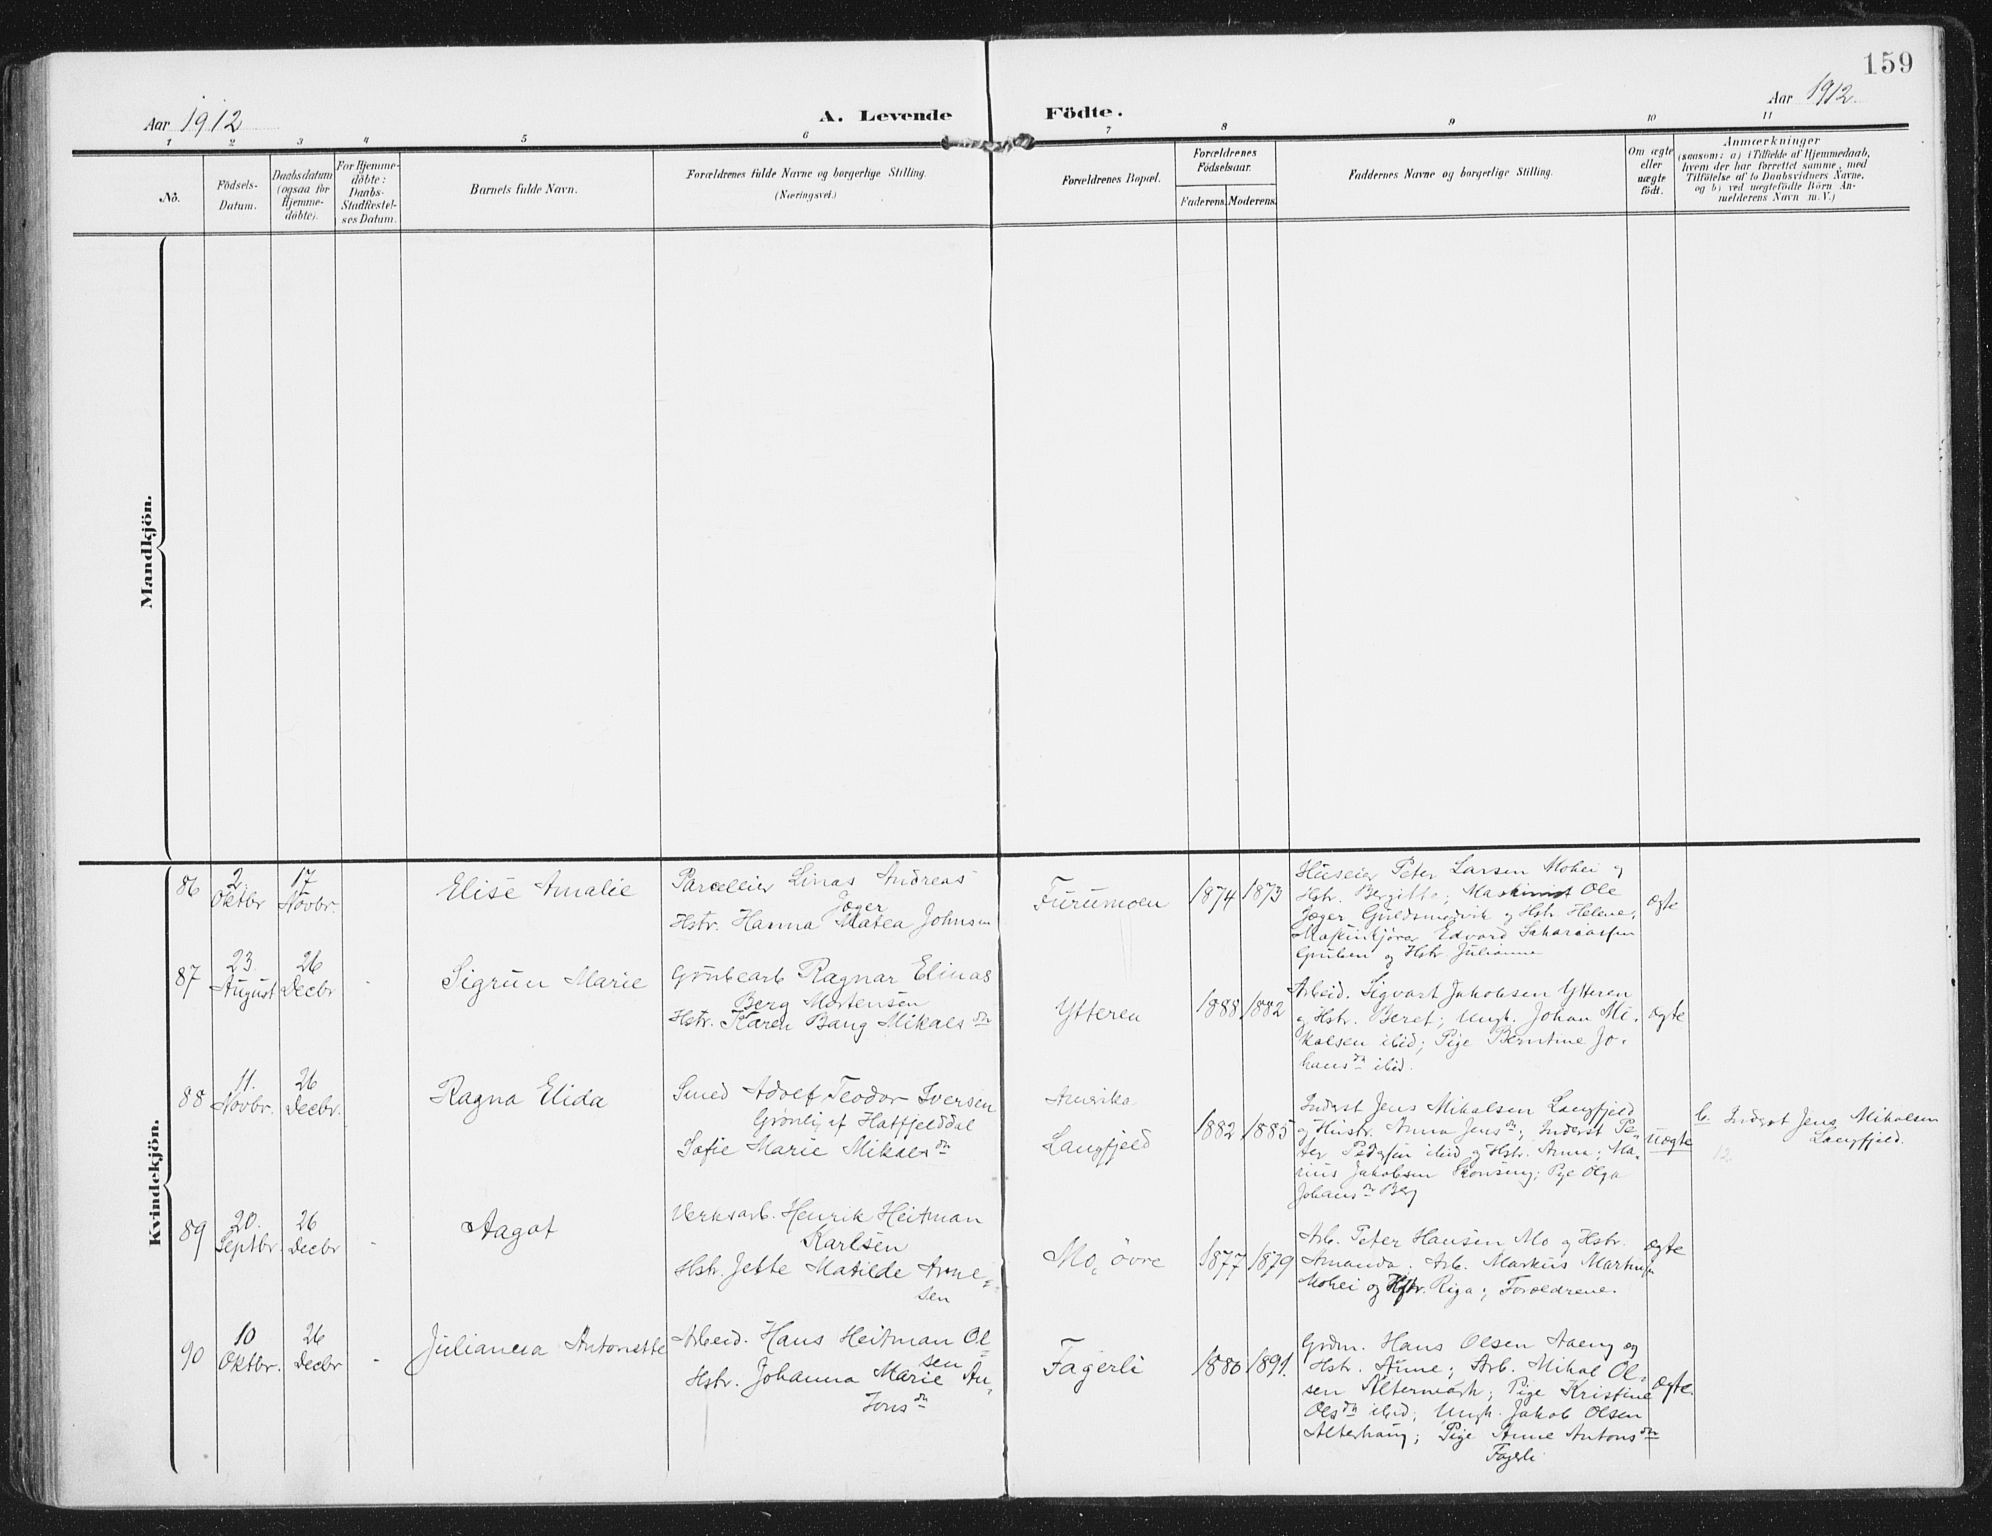 159
Aar 1912
A. Levende Födte.
Aar 1912
1 2 3 4 5 6 7 8 9 10 11
No.
Födsels-
Datum.
Daabsdatum
(ogsaa for
Hjemme-
døbte).
For Hjemme-
døbte:
Daabs-
Stadfæstel-
ses Datum.
Barnets fulde Navn.
Forældrenes fulde Navne og borgerlige Stilling.
(Næringsvei.)
Forældrenes Bopæl.
Forældrenes
Födselsaar.
Faderens. Moderens.
Faddernes Navne og borgerlige Stilling.
Om ægte
eller
uægte
födt.
Anmærkninger
(saasom: a) i Tilfælde af Hjemmedaab,
hvem der har forrettet samme, med
Tilföielse af to Daabsvidners Navne,
og b) ved uægtefödte Börn An-
melderens Navn m. V.)
Mandkjön.
Kvindekjön.
86
2
Oktbr
17
Novbr.
Elise Amalie
Parcelleier Linas Andreas
Jæger
Hstr. Hanna Matea Johnsen
Furumoen
1874
1873
Huseier Peter Larsen Mohei og
Hstr. Bergitte; Maskinist Ole
Jæger Guldsmedvik og Hstr. Helene;
Maskinkjører Edvard Sakariassen
Gruben og Hstr Julianne
ægte
87
23
August
26
Decbr
-
Sigrun Marie
Grubearb Ragnar Elinas
Berg Mortensen
Hstr. Karen Bang Mikalsdn
Ytteren
1888
1882
Arbeid. Sigvart Jakobsen Ytteren
og Hstr. Beret; Ungk. Johan Mi-
kalsen ibid; Pige Berntine Jo-
hansdn ibid.
ægte
88
11.
Novbr.
26
Decbr.
Ragna Elida
Smed Adolf Teodor Iversen
Grønli af Hatfjelddal
Sofie Marie Mikalsdn
Amerika
Langfjeld
1882
1885
Inderst Jens Mikalsen Langfjeld
og Hustr. Anna Jensdn; Inderst Pe-
ter Pedersen ibid og Hstr. Anna; Ma-
rius Jakobsen Skonseng; Pige Olga
Johansdn Berg
uægte
b. Inderst Jens Mikalsen
Langfjeld.
12
89
20.
Septbr.
26
Decbr
-
Aagot
Verksarb. Henrik Heitman
Karlsen
Hstr. Jette Matilde Arne-
sen
Mo, övre
1877
1879
Arb. Peter Hansen Mo og Hstr.
Amanda; Arb. Markus Martinsen
Mohei og Hstr. Riga; Forældrene.
ægte
90
10
Oktbr.
26
Decbr
-
Julianna Antonette
Arbeid. Hans Heitman Ol-
sen
Hstr. Johanna Marie An-
tonsdn
Fagerli
1880
1891.
Grdm. Hans Olsen Aaeng og
Hstr. Anne; Arb. Mikal Ol-
sen Altermark; Pige Kristine
Olsdn ibid; Ungk. Jakob Olsen
Alterhaug; Pige Anne Antonsdn
Fagerli
ægte.